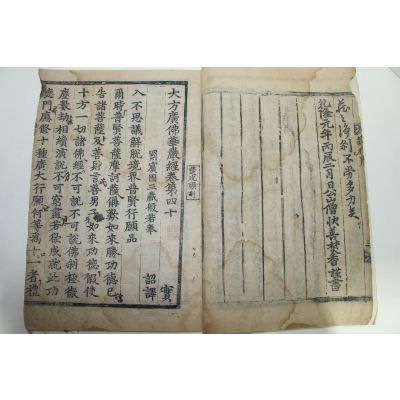 茫之海刹不勞多力矣
乾隆元年丙辰二月日公山僧快善焚香謹書
大方廣佛華嚴經卷第四十
罽賓國三藏般若奉
詔譯
入不思議解脫境界普賢行願品
爾時普賢菩薩摩訶薩稱歎如來勝功德已
告諸菩薩及善財言善男子如來功德假使
十方一切諸佛經不可說不可說佛刹極微
塵數劫相續演說不可窮盡若欲成就此功
德門應修十種廣大行願何等爲十一者禮